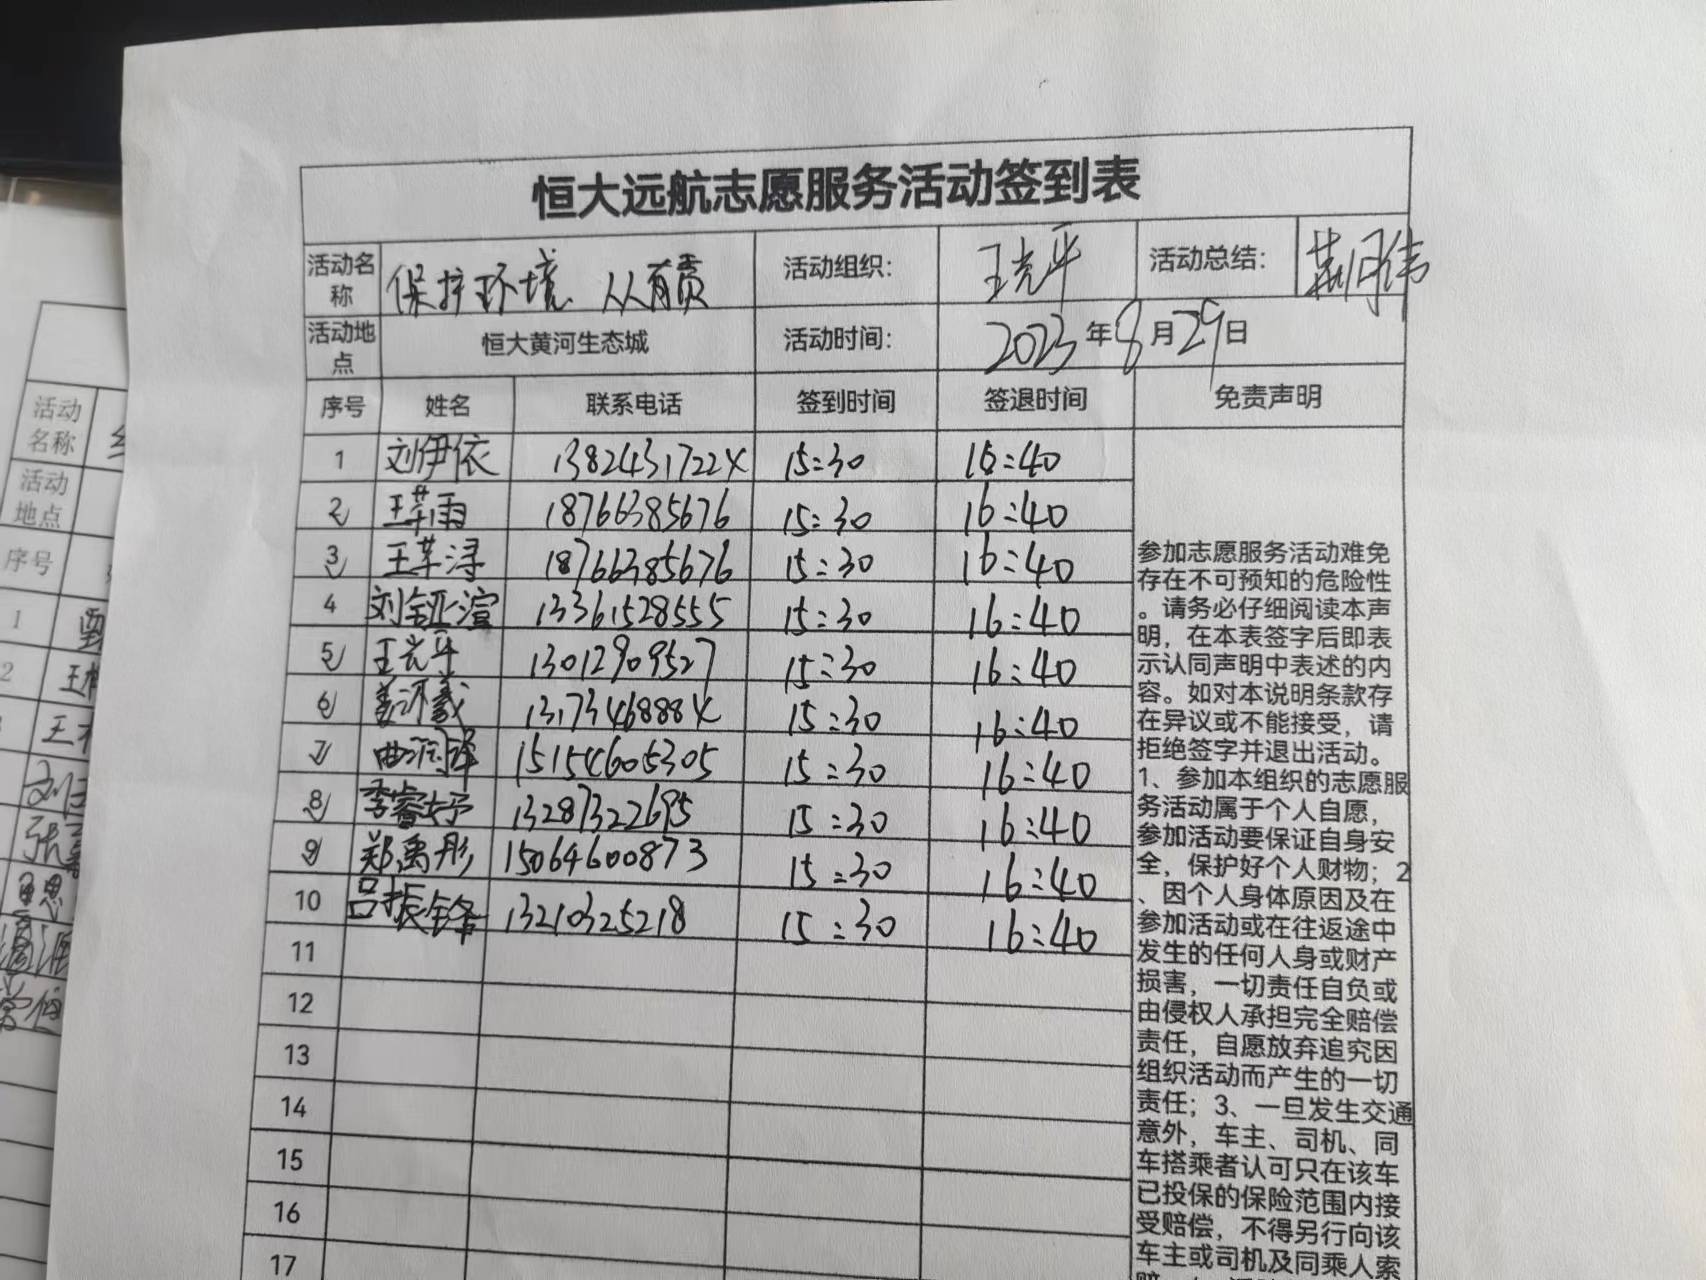 恒大远航志愿服务活动签到表
活动名称 保护环境 从有责 活动组织: 王光平 活动总结:
活动地点 恒大黄河生态城 活动时间: 2023年8月29日
序号 姓名 联系电话 签到时间 签退时间 免责声明
1 刘伊依 1382431722X 15:30 16:40
2 王苹雨 18766385676 15:30 16:40
3 王苹浔 18766385676 15:30 16:40
4 刘钰渲 13361528555 15:30 16:40
5 王光平 13012909527 15:30 16:40
6 姜沐羲 1317346888X 15:30 16:40
7 曲润泽 15154605305 15:30 16:40
8 李睿妤 13287322695 15:30 16:40
9 郑禹彤 15064600873 15:30 16:40
10 吕振锋 13210325218 15:30 16:40
11
12
13
14
15
16
17
参加志愿服务活动难免
存在不可预知的危险性
。请务必仔细阅读本声
明，在本表签字后即表
示认同声明中表述的内
容。如对本说明条款存
在异议或不能接受，请
拒绝签字并退出活动。
1、参加本组织的志愿服
务活动属于个人自愿，
参加活动要保证自身安
全，保护好个人财物；2
、因个人身体原因及在
参加活动或在往返途中
发生的任何人身或财产
损害，一切责任自负或
由侵权人承担完全赔偿
责任，自愿放弃追究因
组织活动而产生的一切
责任；3、一旦发生交通
意外，车主、司机、同
车搭乘者认可只在该车
已投保的保险范围内接
受赔偿，不得另行向该
车主或司机及同乘人索
活动名称
活动地点
序号
1
2